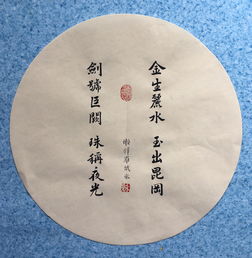 金生麗水 玉出崑岡
劍號巨闕 珠稱夜光